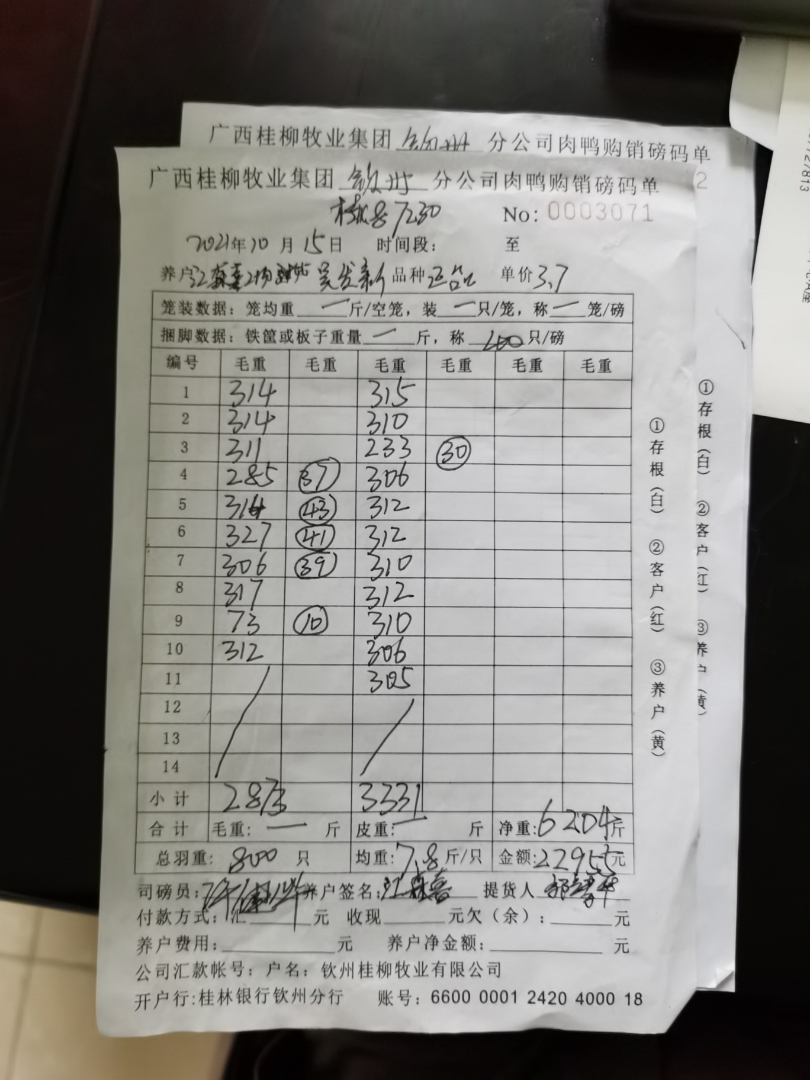 广西桂柳牧业集团 钦州 分公司肉鸭购销磅码单
广西桂柳牧业集团 钦州 分公司肉鸭购销磅码单
7230
No: 0003071
2021年10月15日 时间段: 至
养户 品种 正品 单价3.7
笼装数据: 笼均重 一 斤/空笼, 装 一 只/笼, 称 一 笼/磅
捆脚数据: 铁筐或板子重量 一 斤, 称 只/磅
编号 毛重 毛重 毛重 毛重 毛重 毛重
1 314 315
2 314 310
3 311 233 30
4 285 37 306
5 314 43 312
6 327 41 312
7 306 39 310
8 317 312
9 73 10 310
10 312 306
11 305
12
13
14
小计 2873 3331
合计 毛重: 一 斤 皮重: 一 斤 净重: 6204斤
总羽重: 800 只 均重: 7.8斤/只 金额: 22955元
司磅员: 养户签名: 提货人
付款方式: 汇 元 收现 元欠(余): 元
养户费用: 元 养户净金额: 元
公司汇款帐号: 户名: 钦州桂柳牧业有限公司
开户行:桂林银行钦州分行 账号: 6600 0001 2420 4000 18
①存根(白) ②客户(红) ③养户(黄)
①存根(白) ②客户(红) ③养户(黄)